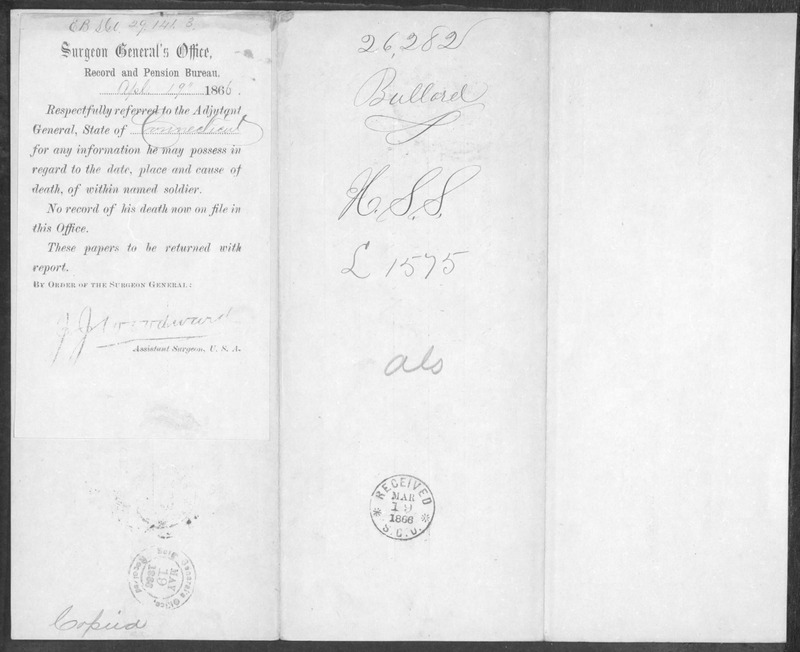 Surgeon General's Office,
Record and Pension Bureau.
Apl 19" 1866.
Respectfully referred to the Adjutant
General, State of Connecticut
for any information he may possess in
regard to the date, place and cause of
death, of within named soldier.
No record of his death now on file in
this Office.
These papers to be returned with
report.
BY ORDER OF THE SURGEON GENERAL:
J J Woodward
Assistant Surgeon, U. S. A.
MAY
19
1866
Copied
26,282
Bullard
H. S. S.
L 1575
als
RECEIVED
MAR
19
1866
S.G.O.